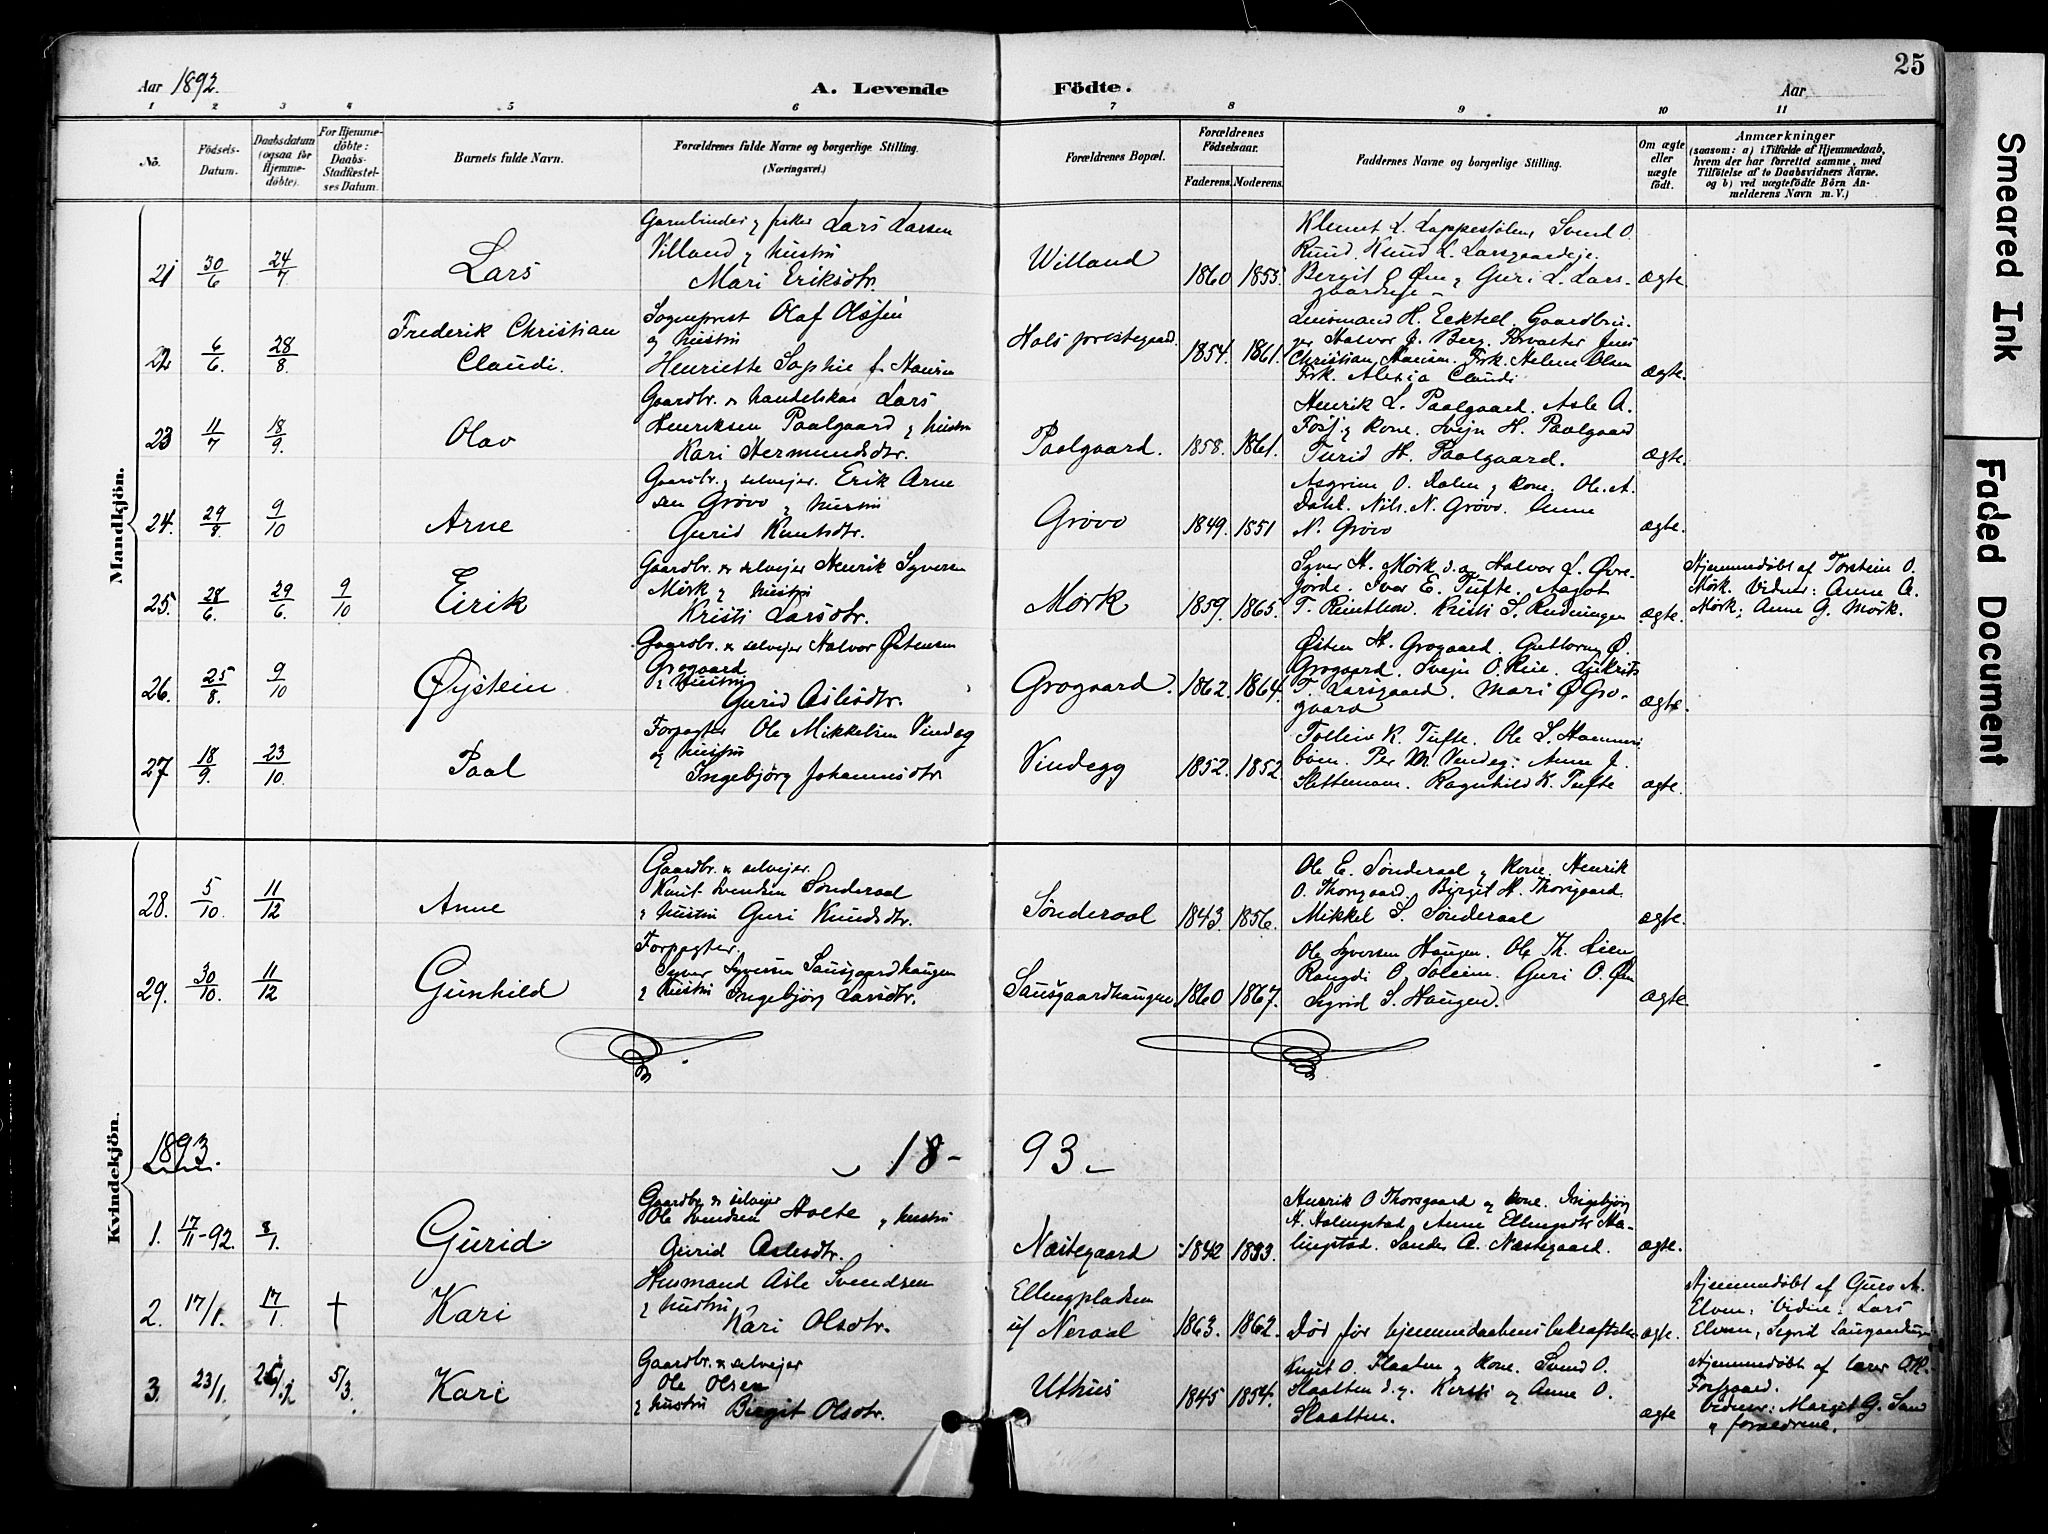 25
Aar 1892.
A. Levende Födte.
Aar
1 2 3 4 5 6 7 8 9 10 11
No.
Födsels-Datum.
Daabsdatum (ogsaa for Hjemme-döbte).
For Hjemme-döbte: Daabs-Stadfæstel-ses Datum.
Barnets fulde Navn.
Forældrenes fulde Navne og borgerlige Stilling.
(Næringsvei.)
Forældrenes Bopæl.
Forældrenes Födselsaar.
Faderens. Moderens.
Faddernes Navne og borgerlige Stilling.
Om ægte eller uægte födt.
Anmærkninger
(saasom: a) i Tilfælde af Hjemmedaab,
hvem der har forrettet samme, med
Tilföielse af to Daabsvidners Navne,
og b) ved uægtefödte Börn An-
melderens Navn m. V.)
Mandkjön.
21 30/6 24/7 Lars
Garnbinder og fisker Lars Larsen
Villand og hustru
Mari Eriksdtr.
Willand 1860 1855.
Klemet L. Lappestølen, Svend O.
Ruud. Knud L. Larsgaardeje.
Bergit O. Øen og Guri L. Lars-
gaardeje
ægte
22 6/6. 28/8. Frederik Christian
Claudi.
Sogneprest Olaf Olssen
og hustru
Henriette Sophie f. Hansen
Hols prestegaard. 1854. 1861.
Lensmand H. Eckteel. Gaardbru-
ger Halvor J. Berg. Forvalter Jens
Christian Hansen. Frk. Helene Olsen
Frk. Alexia Claudi
ægte.
23 11/7 18/9. Olav
Gaardbr. & handelskar Lars
Henriksen Paalgaard og hustru
Kari Hermundsdtr.
Paalgaard. 1858. 1861.
Henrik L. Paalgaard. Asle A.
Fosj og kone. Svejn H. Paalgaard
Turid H. Paalgaard.
ægte.
24. 29/8. 9/10 Arne
Gaardbr. og selvejer. Erik Arne
sen Grøvo og hustru
Gurid Knutsdtr.
Grøvo 1849. 1851
Asgrim O. Dalen og kone. Ole. A.
Dahl. Nils. N. Grøvo. Anne
N. Grøvo
ægte.
25. 28/6. 29/6. 9/10 Eirik
Gaardbr. & selvejer Henrik Syversen
Mørk og hustru
Kristi Larsdtr.
Mørk 1859. 1865.
Syver H. Mørk. Halvor L. Øvre-
gjorde. Ivar E. Tufte. Aagot
T. Kristi S. Rudningen
ægte.
Hjemmedøbt af Torstein O.
Mørk. Vidner: Anne A.
Mørk; Anne G. Mørk.
26. 25/8. 9/10 Øystein
Gaardbr. & selvejer Halvor Østensen
Grøgaard
og hustru
Gurid Aslesdtr.
Grøgaard. 1862. 1864.
Østen H. Grøgaard. Guttorm Ø.
Grøgaard. Svejn O. Rue.
T. Larsgaard. Mari Ø Grø-
gaard
ægte.
27 18/9. 23/10. Paal
Forpagter Ole Mikkelsen Vindeg
og hustru
Ingebjørg Johannesdtr
Vindegg 1852. 1852.
Tollein K. Tufte. Ole L. Hammers
bøen. Per M. Vindeg. Anne J.
Slettemoen. Ragnhild K. Tufte
ægte.
Kvindekjön.
28. 5/10. 11/12 Anne
Gaardbr. & selvejer.
Knut Svendsen Sønderaal
og hustru Guri Knudsdtr.
Sønderaal 1843. 1856.
Ole E. Sønderaal og kone. Henrik
O. Thorsgaard, Birgit H. Thorsgaard.
Mikkel S. Sønderaal
ægte.
29. 30/10. 11/12 Gunhild
Forpagter.
Syver Syversen Sausgaardhaugen
og hustru Ingebjørg Larsdtr.
Sausgaardhaugen 1860 1867.
Ole Syversen Haugen. Ole Th. Lien
Rangdi O. Soleim. Guri O. Øen
Sigrid S. Haugen.
ægte
1893. 18- 93-
1. 17/11-92. 8/1. Gurid
Gaardbr. & selvejer
Ole Svendsen Holte og hustru
Gurid Aslesdtr.
Næstegaard 1842 1853.
Henrik O Thorsgaard og kone. Ingebjørg
H. Holmgstad, Anne Ellingsdtr. Ho-
lingstad. Sander A. Næstegaard.
ægte.
2. 17/1. 17/1 † Kari
Husmand Asle Svendsen
og hustru
Kari Olsdtr.
Ellingpladsen
u/ Neraal 1863. 1862.
Død før hjemmedaabens bekræftelse
ægte.
Hjemmedøbt af Guro A.
Elven. Vidne: Lars
Elven, Sigrid
3. 23/1. 26/1 5/3. Kari
Gaardbr. & selvejer
Ole Olsen
og hustru Birgit Olsdtr.
Uthus 1845 1854.
Knut O. Slaatten og kone. Svend O.
Slaatten d.y. Kersti og Anne O.
Slaatten.
ægte
Hjemmedøbt af lærer
Vidner: Margit G. Sand
og forældrene.
Smeared Ink
Faded Document